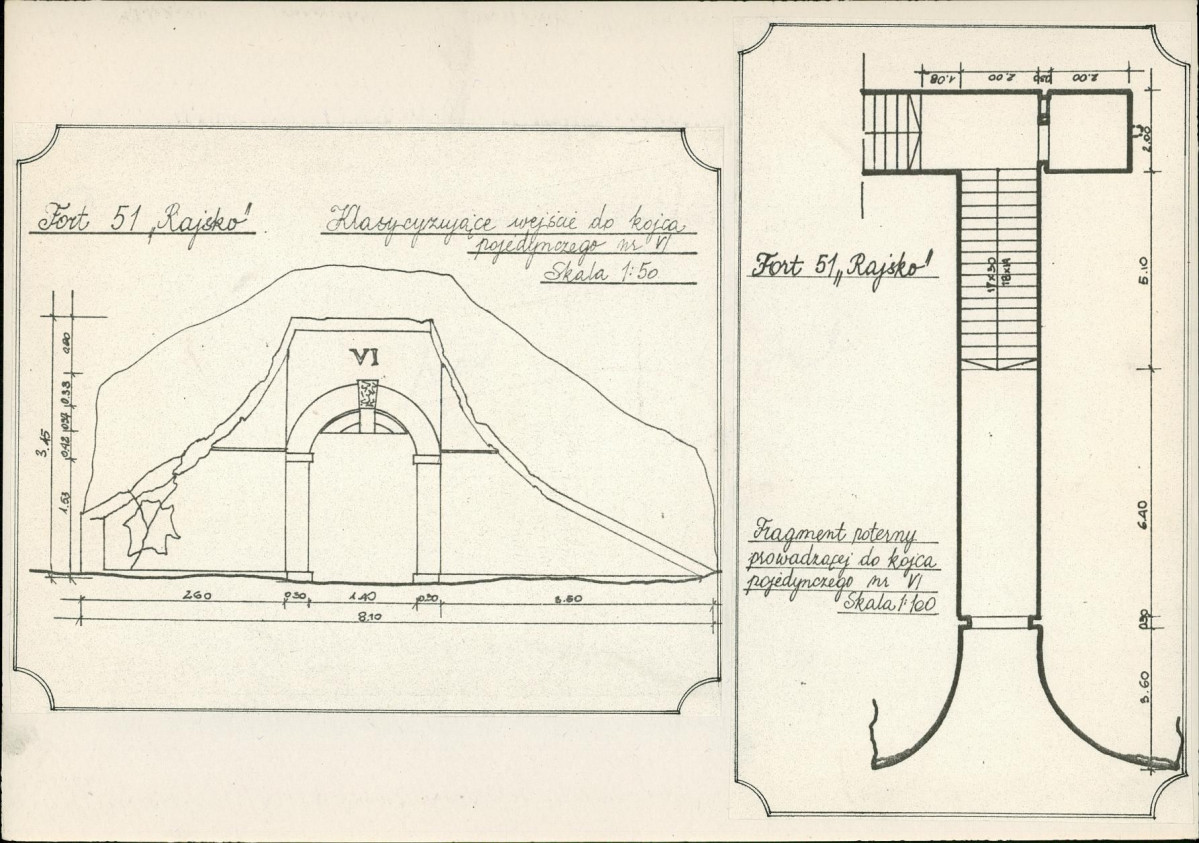 Fort 51 „Rajsko"
Klasycyzujące wejście do kojca
pojedynczego nr VI
Skala 1:50
VI
3.45
0.33
0.42
1.53
2.60
0.30
1.40
0.30
8.10
1.08
2.00
0.30
2.00
2.00
Fort 51 „Rajsko"
17×30
18×14
5.10
Fragment poterny
prowadzącej do kojca
pojedynczego nr VI
Skala 1:100
6.40
0.30
3.60